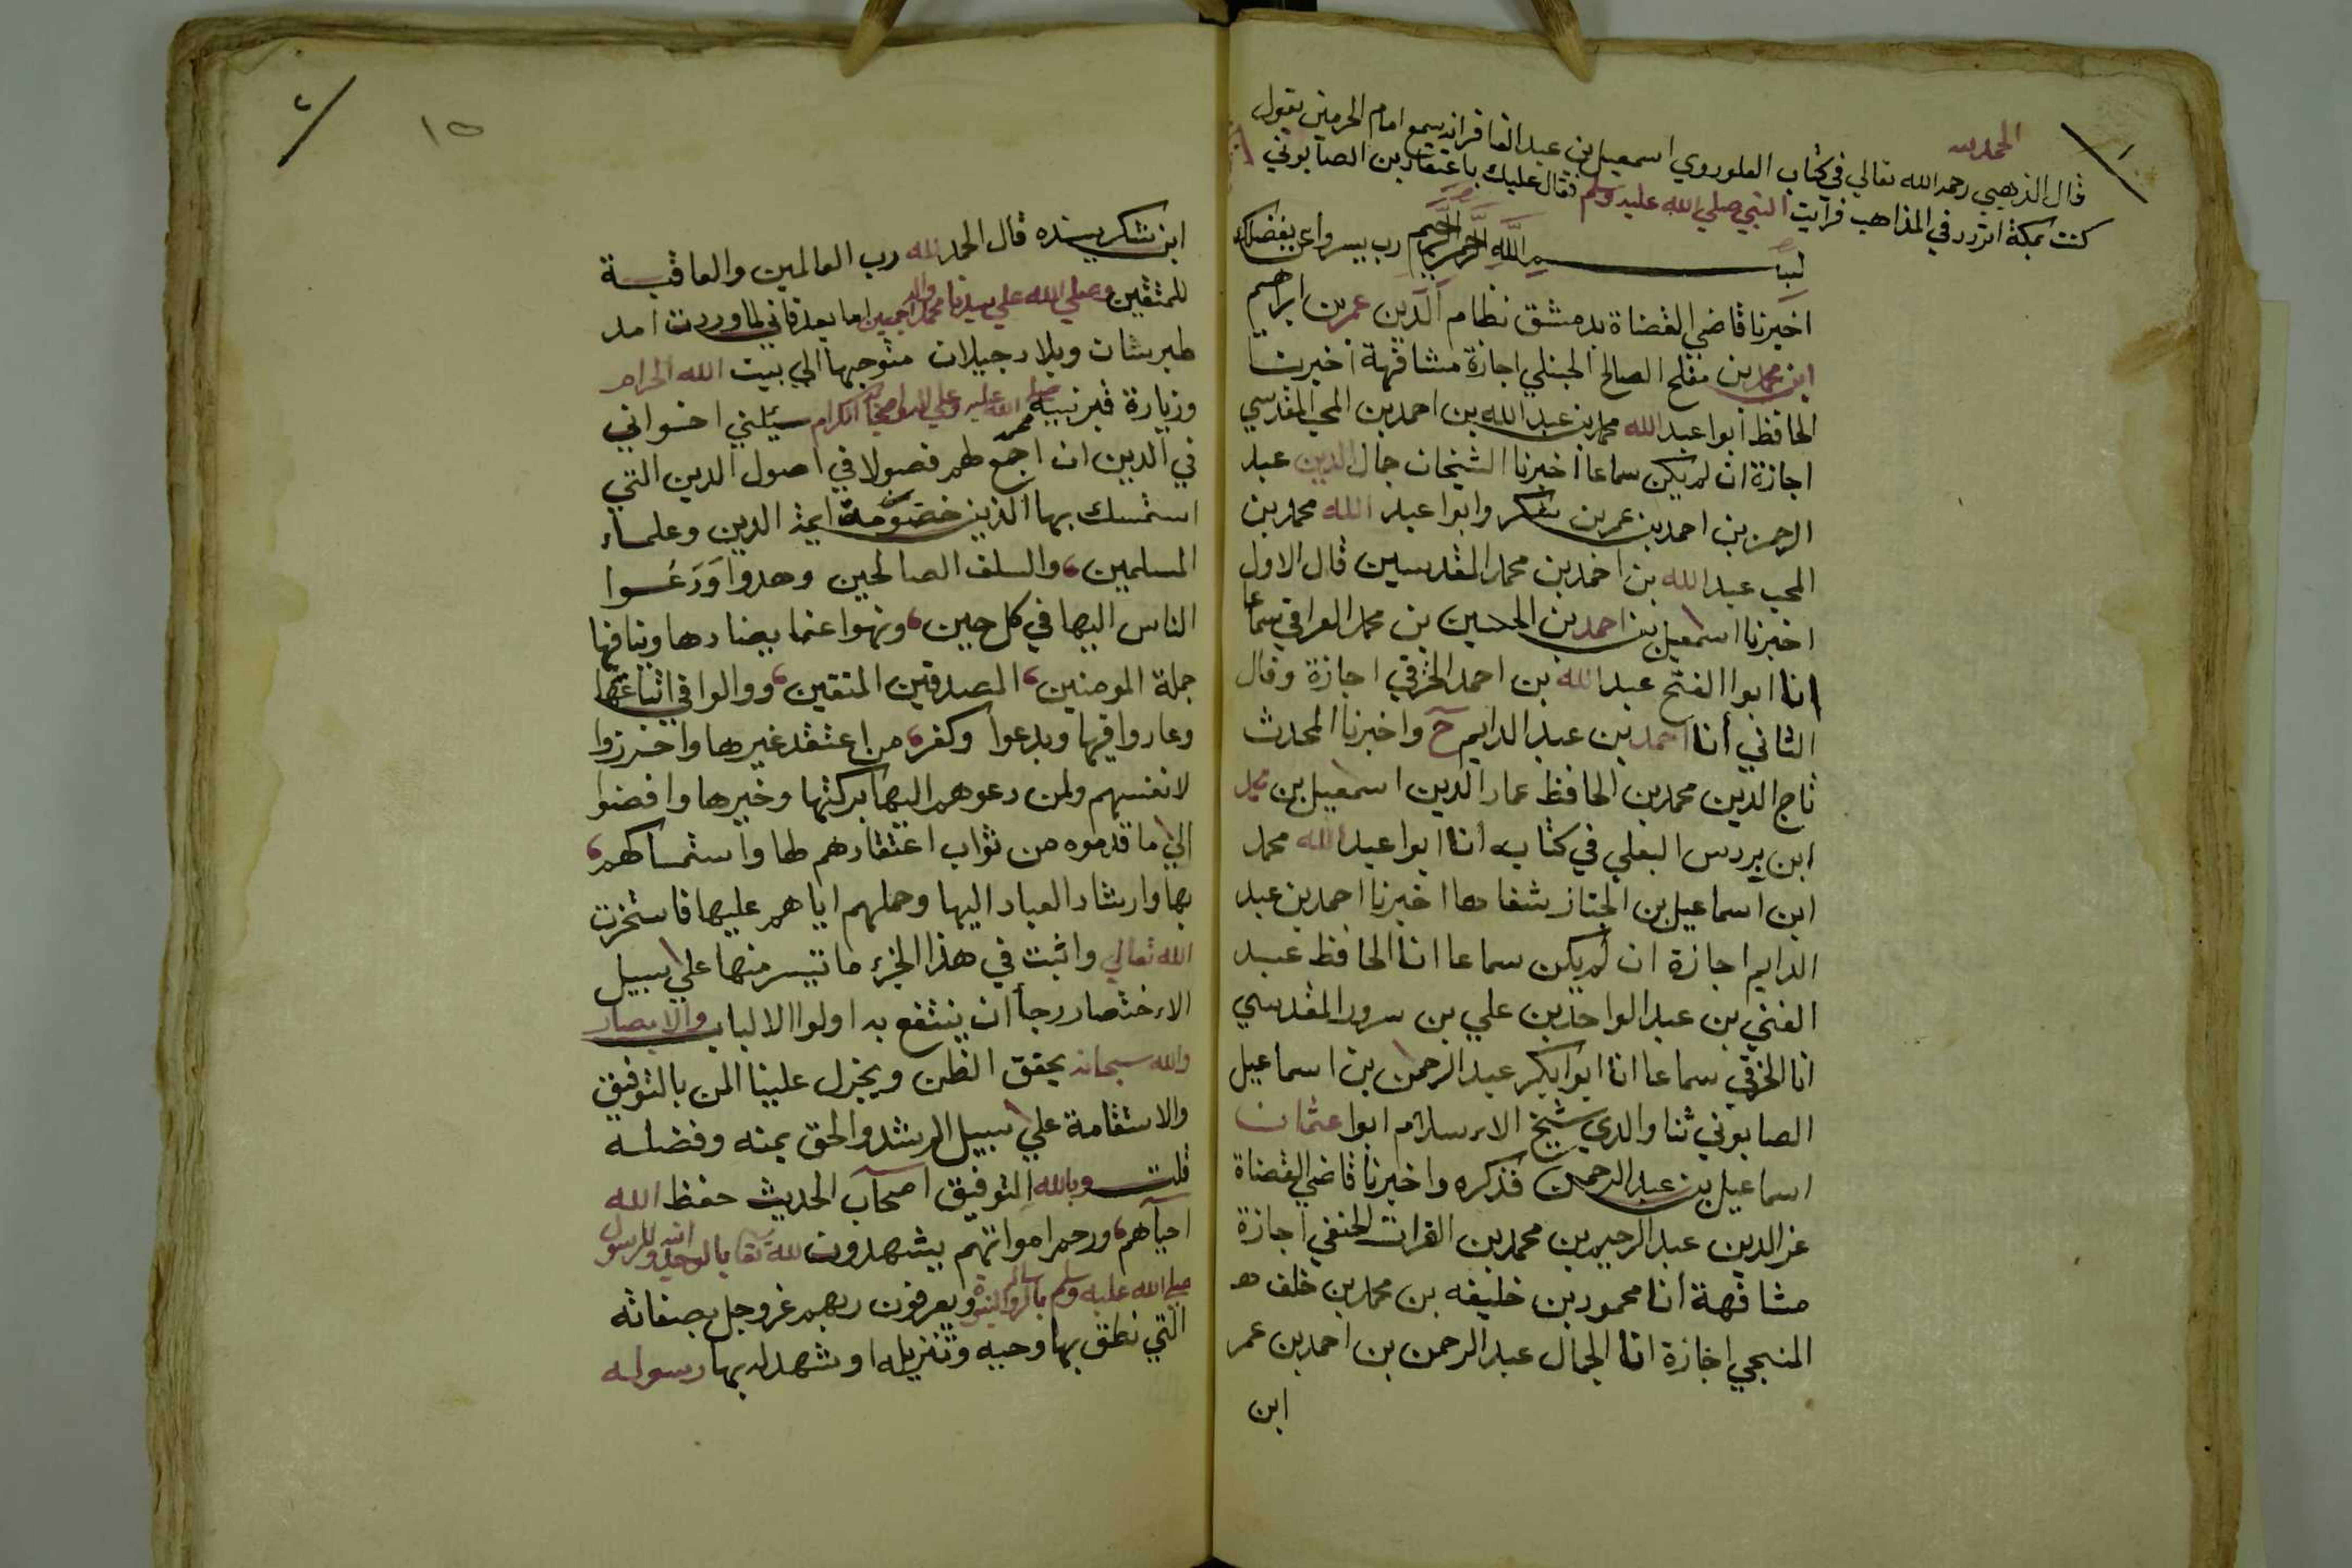 الحمد لله
قال الذهبي رحمه الله تعالي في كتاب العلو روي اسمعيل بن عبد الغافر انه سمع امام الحرمين يقول
كنت بمكة اتردد في المذاهب فرايت النبي صلي الله عليه وسلم فقال عليك باعتقاد بن الصابوني
بسم الله الرحمن الرحيم رب يسر واعن بفضلك
اخبرنا قاضي القضاة بدمشق نظام الدين عمر بن ابراهيم
ابن محمد بن مفلح الصالح الحنبلي اجازة مشافهة اخبرنا
الحافظ ابوا عبد الله محمد بن عبد الله بن احمد بن المحب المقدسي
اجازة ان لم يكن سماعا اخبرنا الشيخان جمال الدين عبد
الرحمن بن احمد بن عمر بن شكر وابوا عبد الله محمد بن
المحب عبد الله بن احمد بن محمد المقدسيين قال الاول
اخبرنا اسمعيل بن احمد بن الحسين بن محمد العراقي سماعا
انا ابوا الفتح عبد الله بن احمد الخرقي اجازة وقال
الثاني أنا احمد بن عبد الدايم ح واخبرنا المحدث
تاج الدين محمد بن الحافظ عماد الدين اسمعيل بن محمد
ابن بردس البعلي في كتابه انا ابوا عبد الله محمد
ابن اسماعيل بن الخباز شفاها اخبرنا احمد بن عبد
الدايم اجازة ان لم يكن سماعا انا الحافظ عبد
الغني بن عبد الواحد بن علي بن سرور المقدسي
انا الخرقي سماعا انا ابوا بكر عبد الرحمن بن اسماعيل
الصابوني ثنا والدي شيخ الاسلام ابوا عثمان
اسماعيل بن عبد الرحمن فذكره واخبرنا قاضي القضاة
عز الدين عبد الرحيم بن محمد بن الفرات الحنفي اجازة
مشافهة أنا محمود بن خليفه بن محمد بن خلف
المنبجي اجازة انا الجمال عبد الرحمن بن احمد بن عمر
ابن
١٥
٢
ابن شكر بسنده قال الحمد لله رب العالمين والعاقبة
للمتقين وصلي الله علي سيدنا محمد واله اجمعين اما بعد فاني لما وردت امد
طبرستان وبلاد جيلان متوجها الي بيت الله الحرام
وزيارة قبر نبيه محمد صلى الله عليه وعلي اله واصحابه الكرام سئلني اخواني
في الدين ان اجمع لهم فصولا في اصول الدين التي
استمسك بها الذين مضوا من ايمة الدين وعلماء
المسلمين، والسلف الصالحين وهدوا وَدَعَوا
الناس اليها في كل حين، ونهوا عما يضادها وينافيها
جملة المومنين، المصدقين المتقين، ووالوا في اتباعها
وعادوا فيها وبدعوا وكفروا من اعتقد غيرها واحرزوا
لانفسهم ولمن دعوهم اليها بركتها وخيرها وافضوا
الي ما قدموه من ثواب اعتقادهم لها واستمساكهم،
بها وارشاد العباد اليها وحملهم اياهم عليها فاستخرت
الله تعالي واثبت في هذا الجزء ما تيسر منها علي سبيل
الاختصار رجاأ ان ينتفع به اولوا الالباب والابصار
والله سبحانه يحقق الظن ويجزل علينا المن بالتوفيق
والاستقامة علي سبيل الرشد والحق بمنه وفضله
قلت وبالله التوفيق اصحاب الحديث حفظ الله
احيآهم، ورحم امواتهم يشهدون لله تعا بالوحدانيه وللرسول
صلي الله عليه وسلم بالرسالة والنبوة ويعرفون ربهم عز وجل بصفاته
التي نطق بها وحيه وتنزيله او شهد له بها رسوله